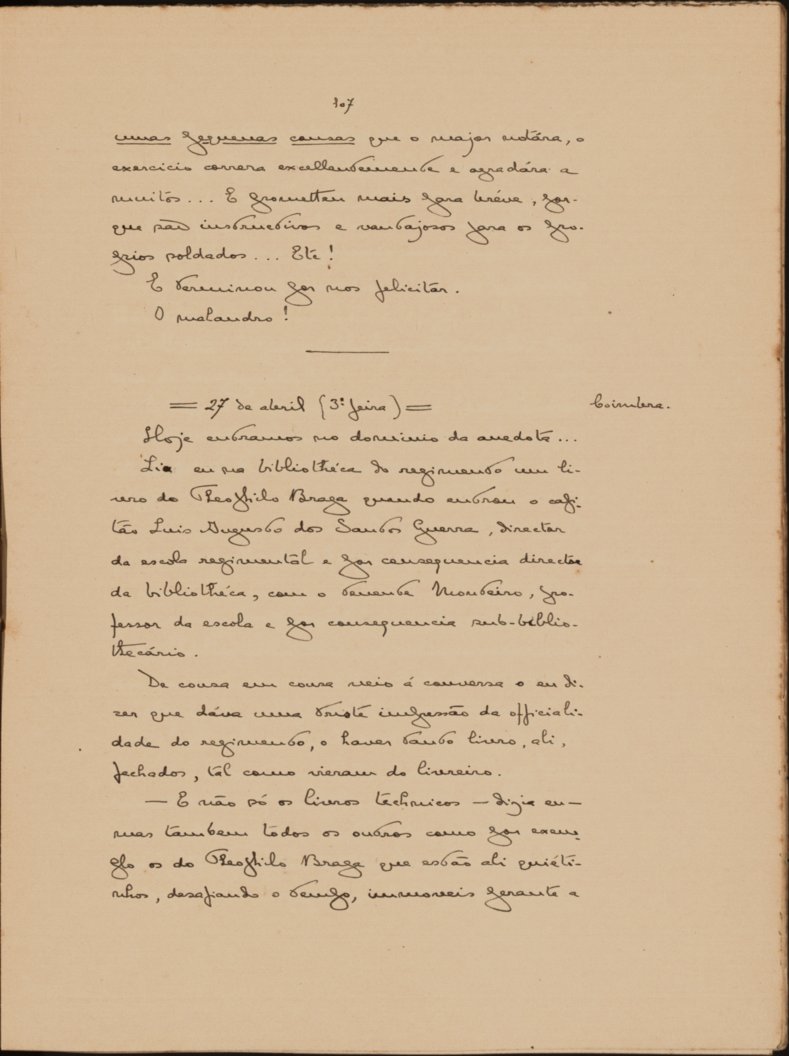 107
umas pequenas cousas que o major notára, o
exercicio correra excellentemente e agradára a
muitos... E prometteu mais para bréve, por-
que são instructivos e vantajosos para os pro-
prios soldados... Etc!
E terminou por nos felicitar.
O malandro!
= 27 de abril (3ª feira) =
Coimbra.
Hoje entramos no dominio da anedota...
Lia eu na bibliothéca do regimento um li-
vro do Theophilo Braga quando entrou o capi-
tão Luis Augusto dos Santos Guerra, director
da escola regimental e por consequencia director
da bibliothéca, com o tenente Monteiro, pro-
fessor da escola e por consequencia sub-biblio-
thecário.
De cousa em cousa veio á conversa o eu di-
zer que dáva uma triste impressão da officiali-
dade do regimento, o haver tanto livro, ali,
fechados, tal como vieram do livreiro.
— E não só os livros technicos — dizia eu —
mas tambem todos os outros como por exem-
plo os do Theophilo Braga que estão ali quiéti-
nhos, desafiando o tempo, immoveis perante a